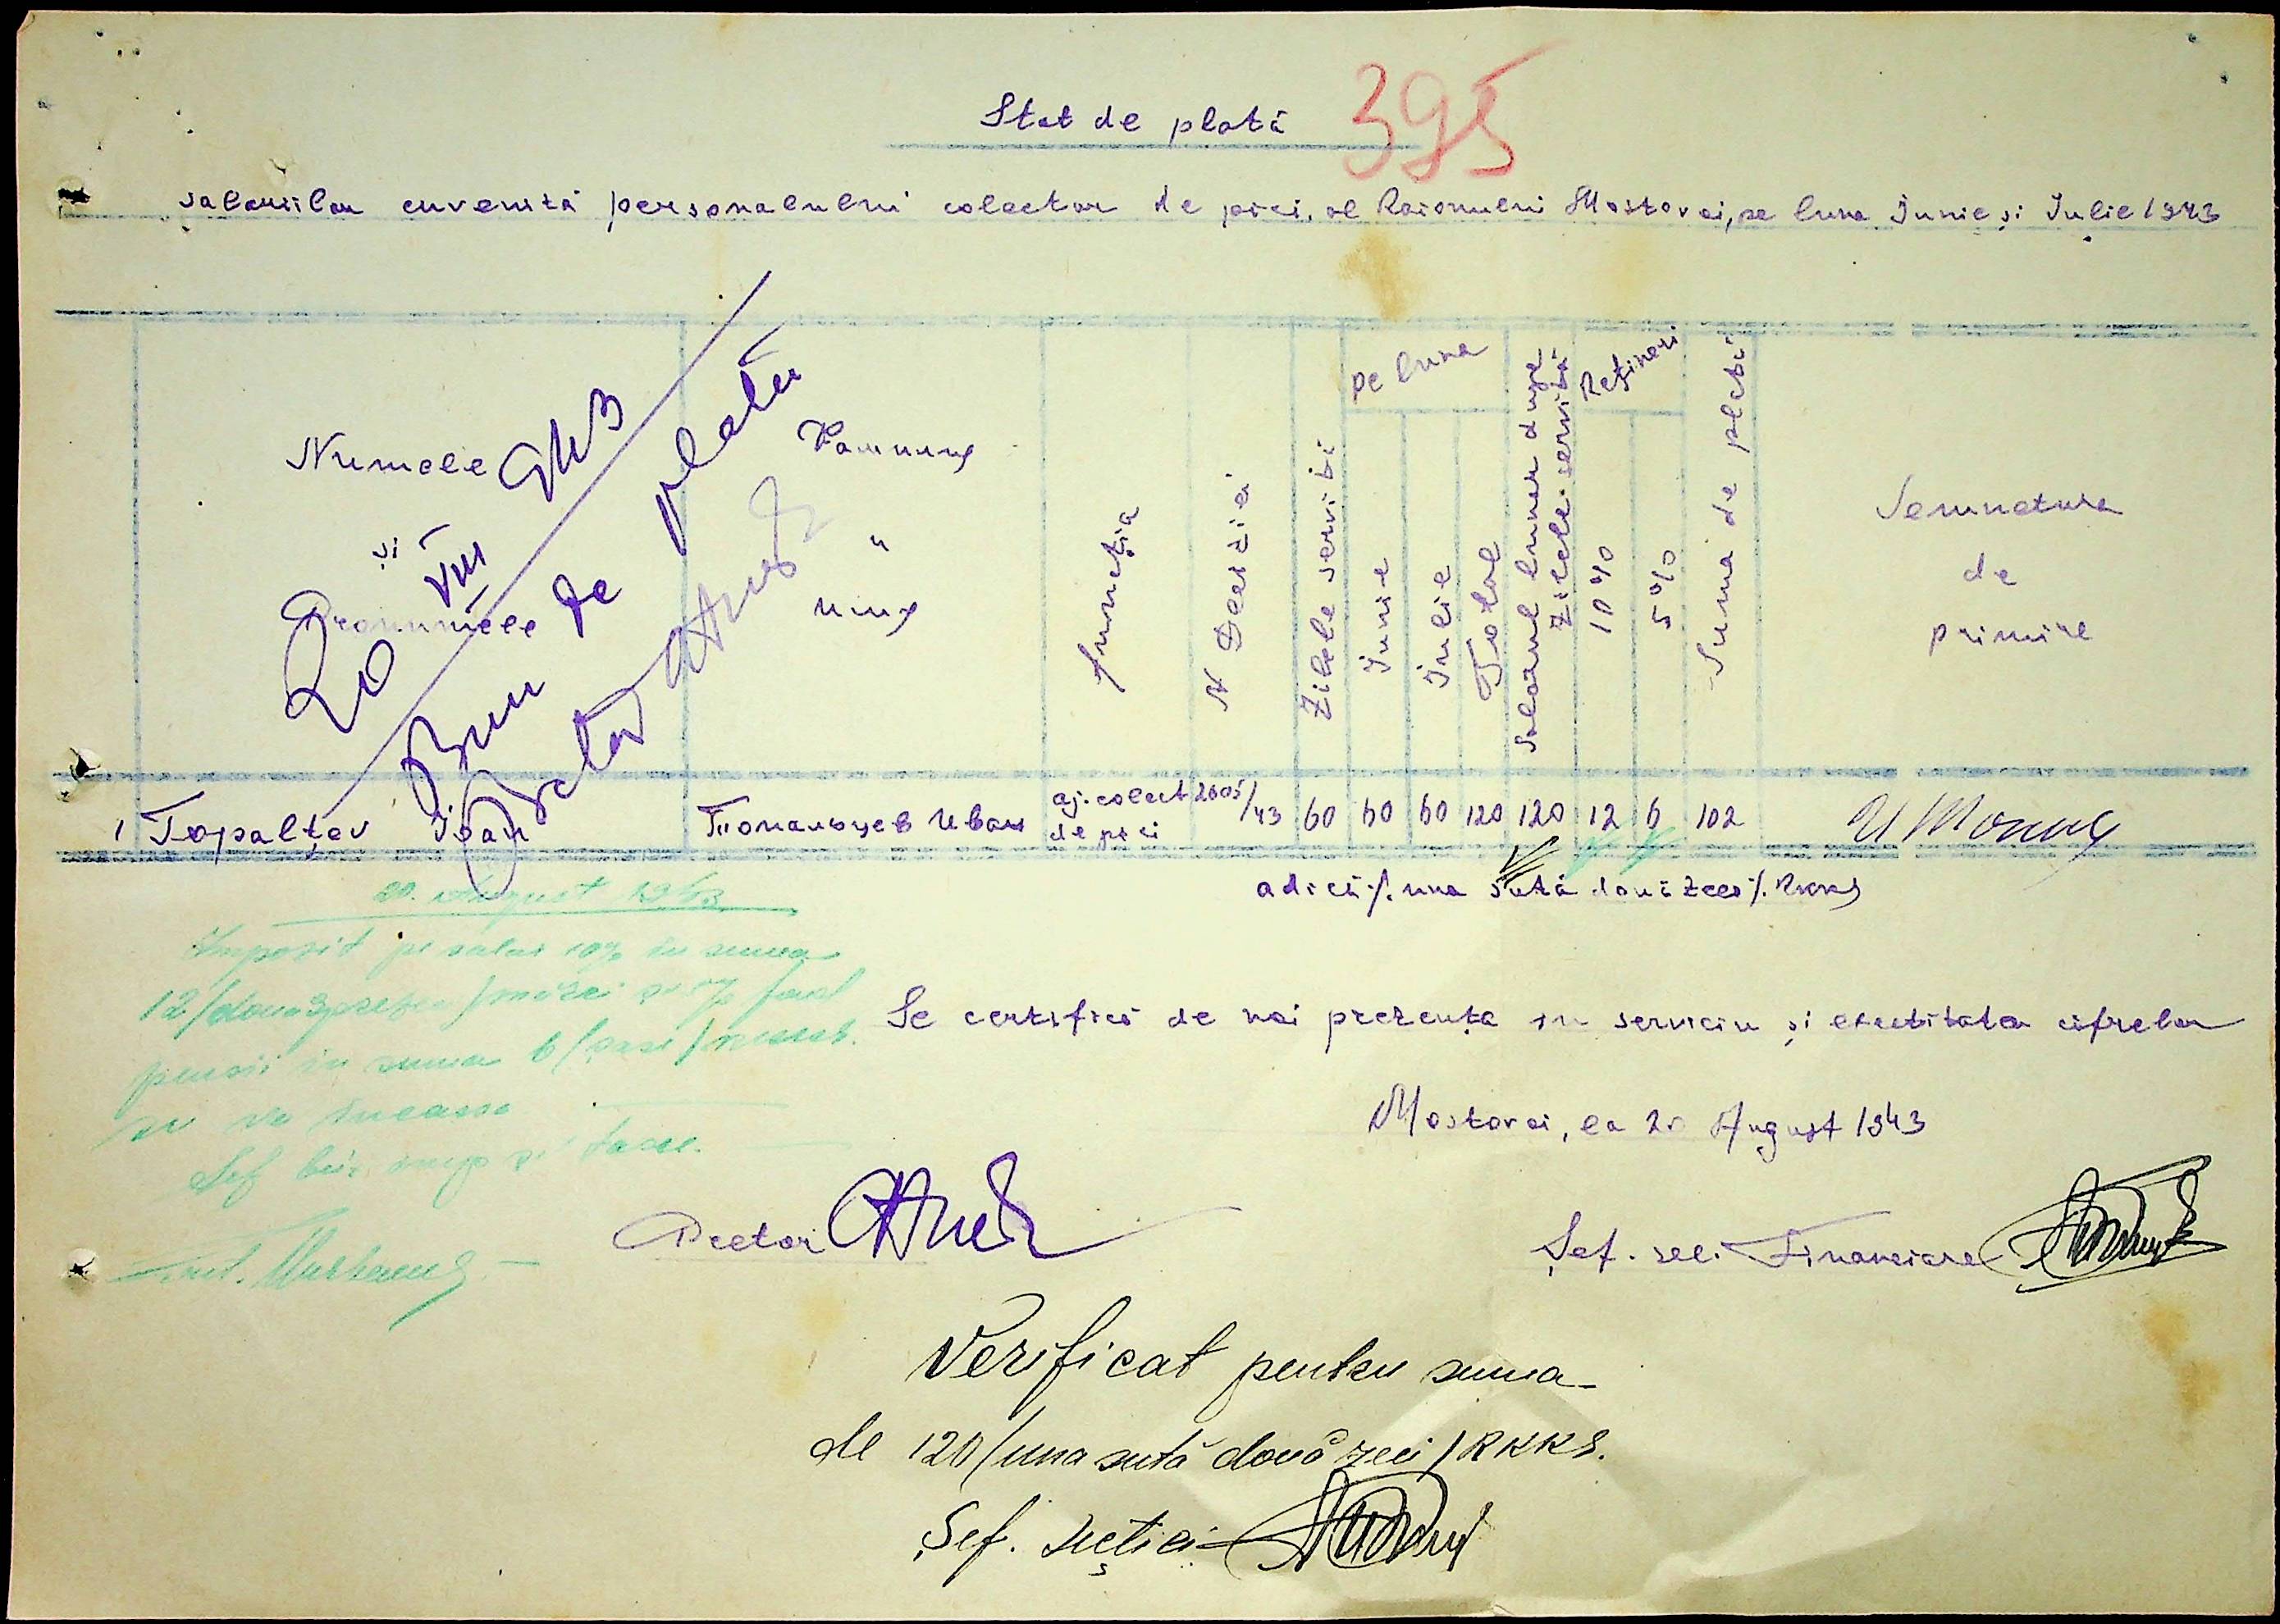 Stat de plată 395
salariilor cuvenită personalului colector de piei, al Raionului Mostovoi, pe luna Iunie și Iulie 1943
Numele
și
Pronumele
20 VIII 943
Bun de plată
Pretor
funcția
N Deciziei
Zilele servite
pe luna
Iunie
Iulie
Total
Salarul lunar după
Zilele servite
Rețineri
10%
5%
Suma de plată
Semnatura
de
primire
1 Topalțev Ivan Топальцев Иван aj. colect de piei 2605/43 60 60 60 120 120 12 6 102
adică /. una sută două zeci /. RKKS
20. August 1943
Impozit pe salar 10% in suma
12 /douăsprezece/ mărci și 5% fond
pensii in suma 6 /șase/
se va incasa
Șef biur. imp și taxe.
Se certifică de noi prezența in serviciu și exactitatea cifrelor
Mostovoi, la 20 August 1943
Pretor
Șef. sec. Financiare
Verificat pentru suma
de 120 /una sută două zeci/ RKKS.
Șef. Secției